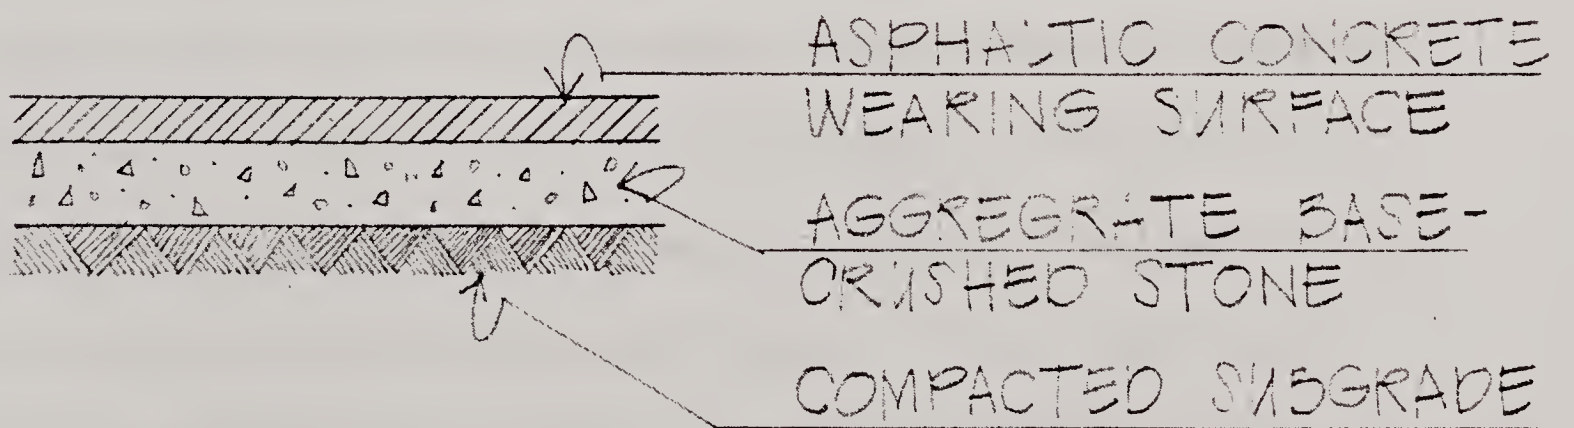 ASPHALTIC CONCRETE
WEARING SURFACE
AGGREGRATE BASE-
CRUSHED STONE
COMPACTED SUBGRADE